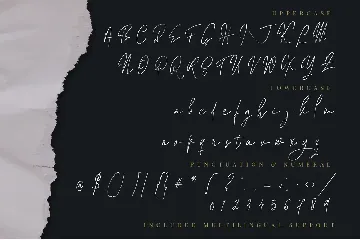 UPPERCASE
A B C D E F G H I J K L M
N O P Q R S T U V W X Y Z
LOWERCASE
a b c d e f g h i j k l m
n o p q r s t u v w x y z
PUNCTUATION & NUMERAL
0 1 2 3 4 5 6 7 8 9
INCLUDED MULTILINGUAL SUPPORT